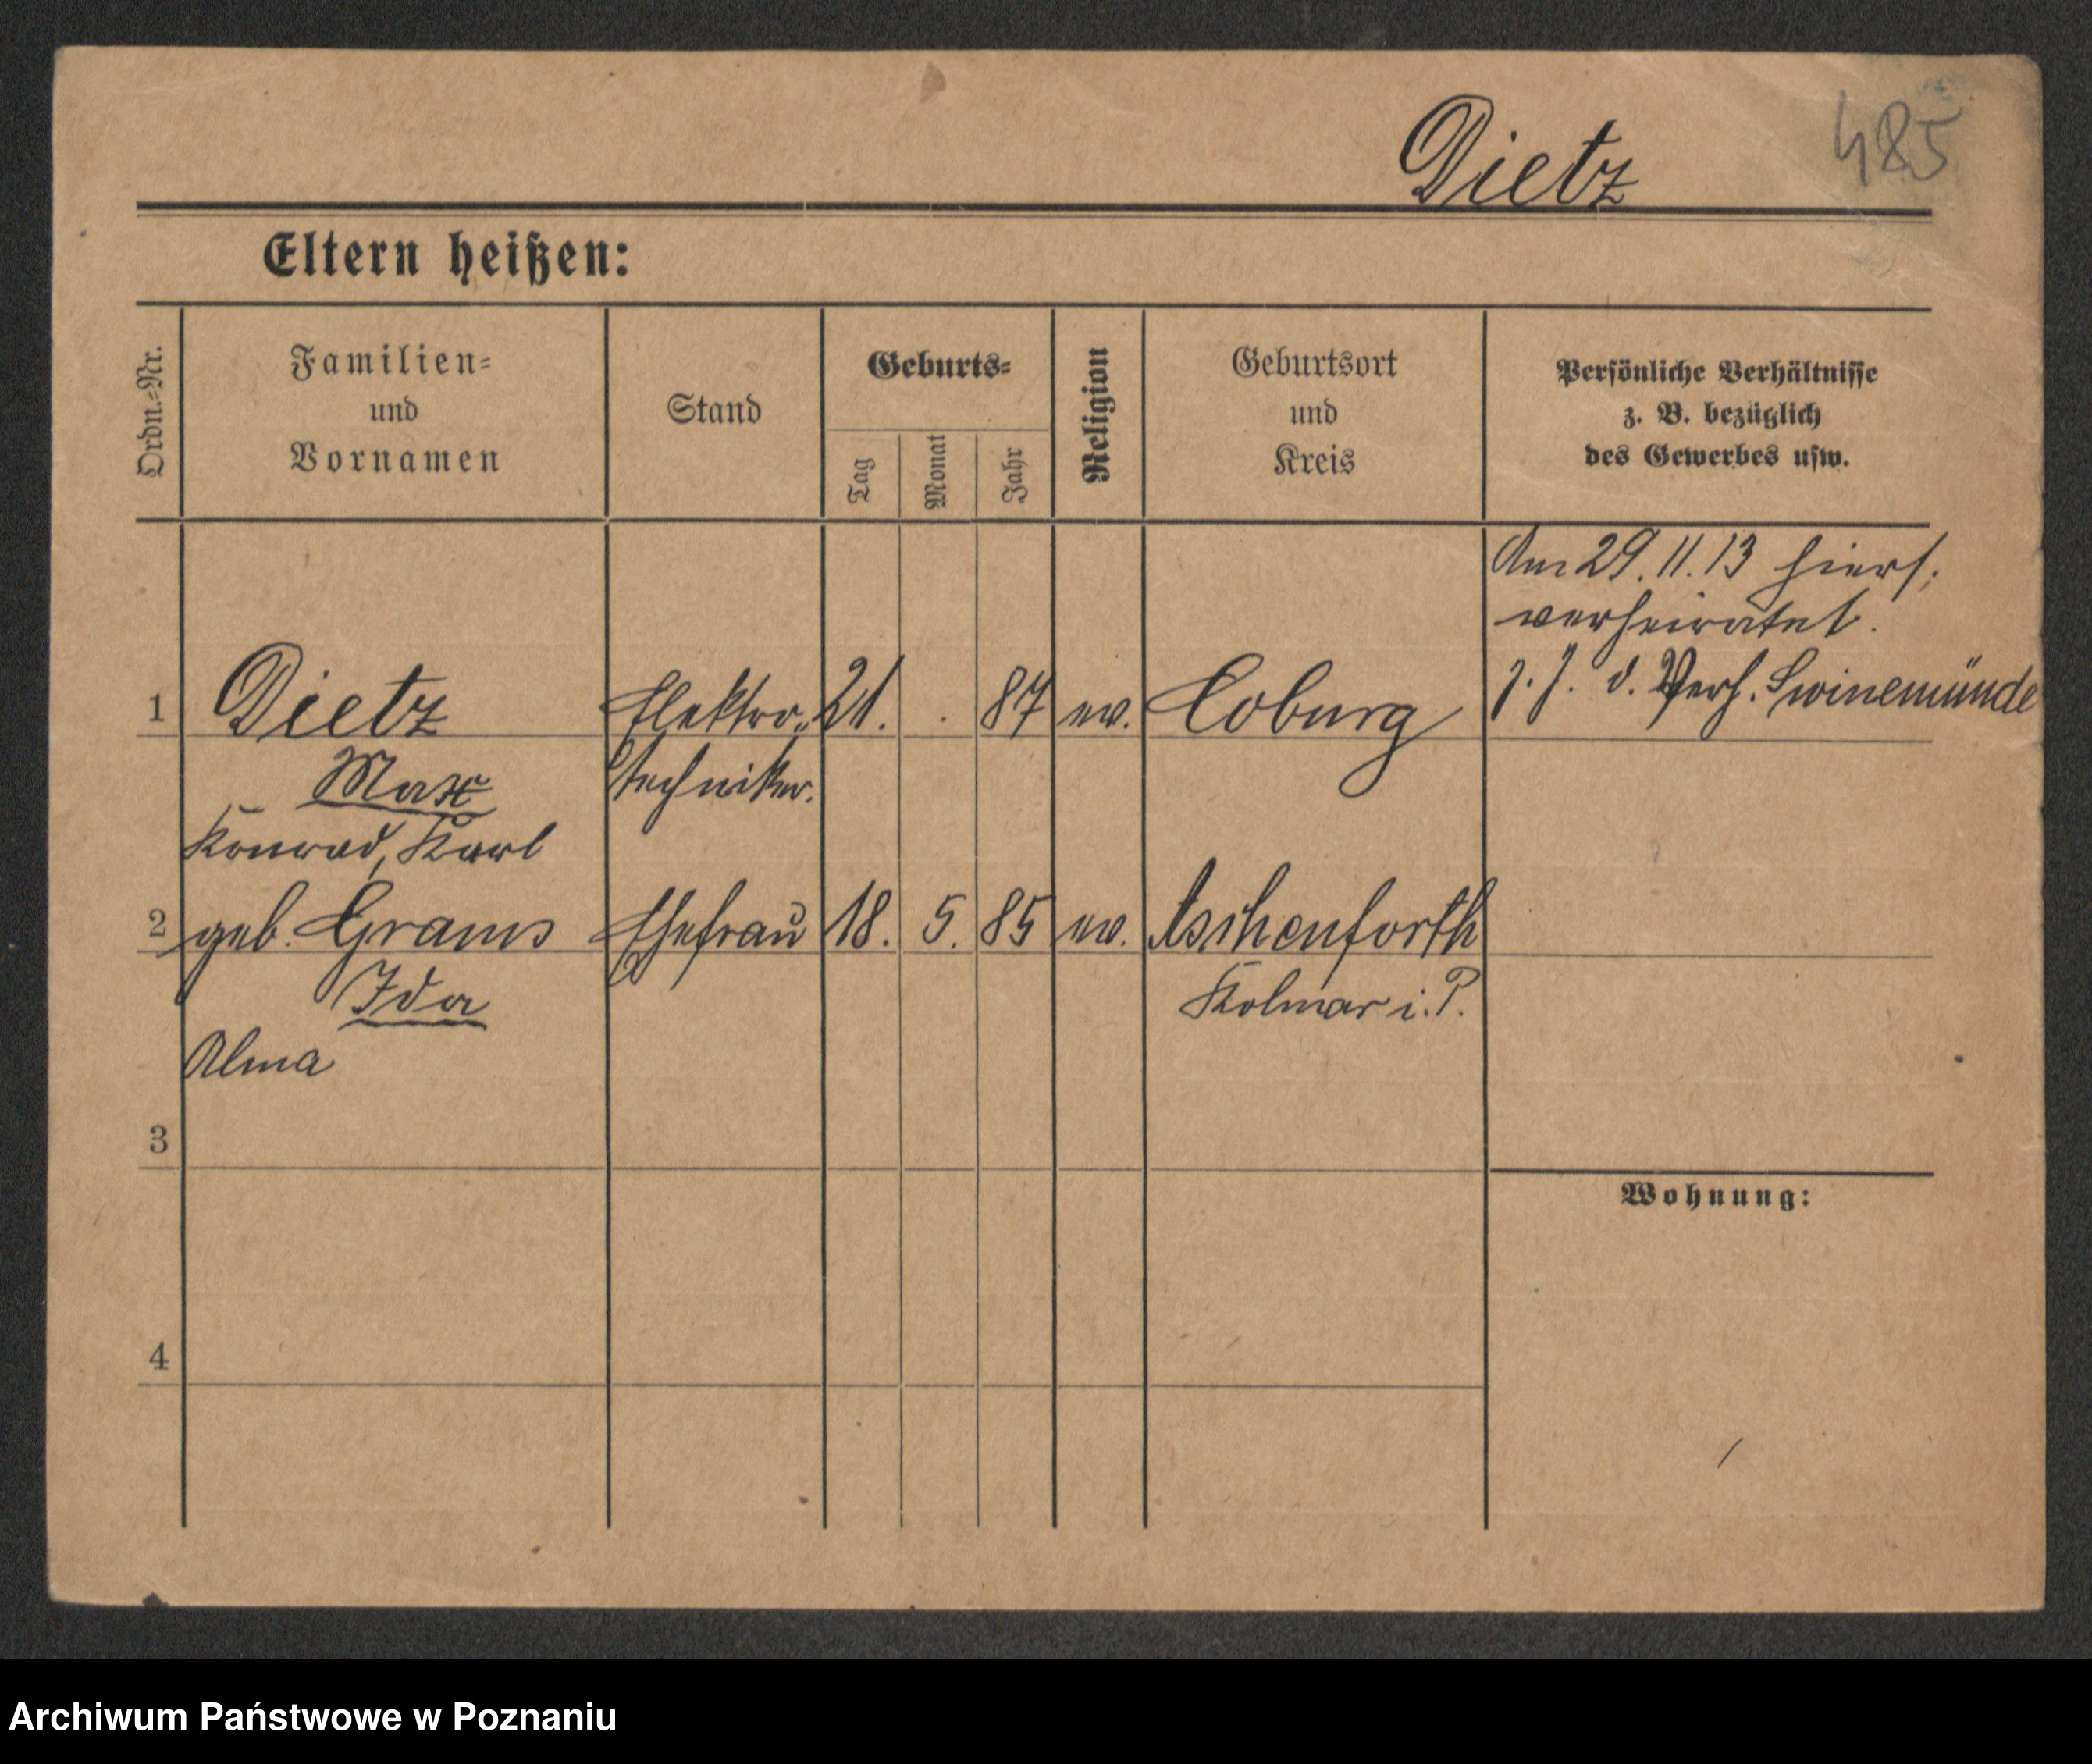 485
Dietz
Eltern heißen:
Ordn.-Nr.
Familien-
und
Vornamen
Stand
Geburts-
Tag
Monat
Jahr
Religion
Geburtsort
und
Kreis
Persönliche Verhältnisse
z. B. bezüglich
des Gewerbes usw.
Am 29.11.13 hiers.
verheiratet.
1 Dietz Elektro- 21. . 87 ev. Coburg d. Verh. Swinemünde
Max techniker.
Konrad, Karl
2 geb. Grams Ehefrau 18. 5. 85 ev. Aschenforth
Ida Kolmar i. P.
Alma
3
Wohnung:
4
Archiwum Państwowe w Poznaniu